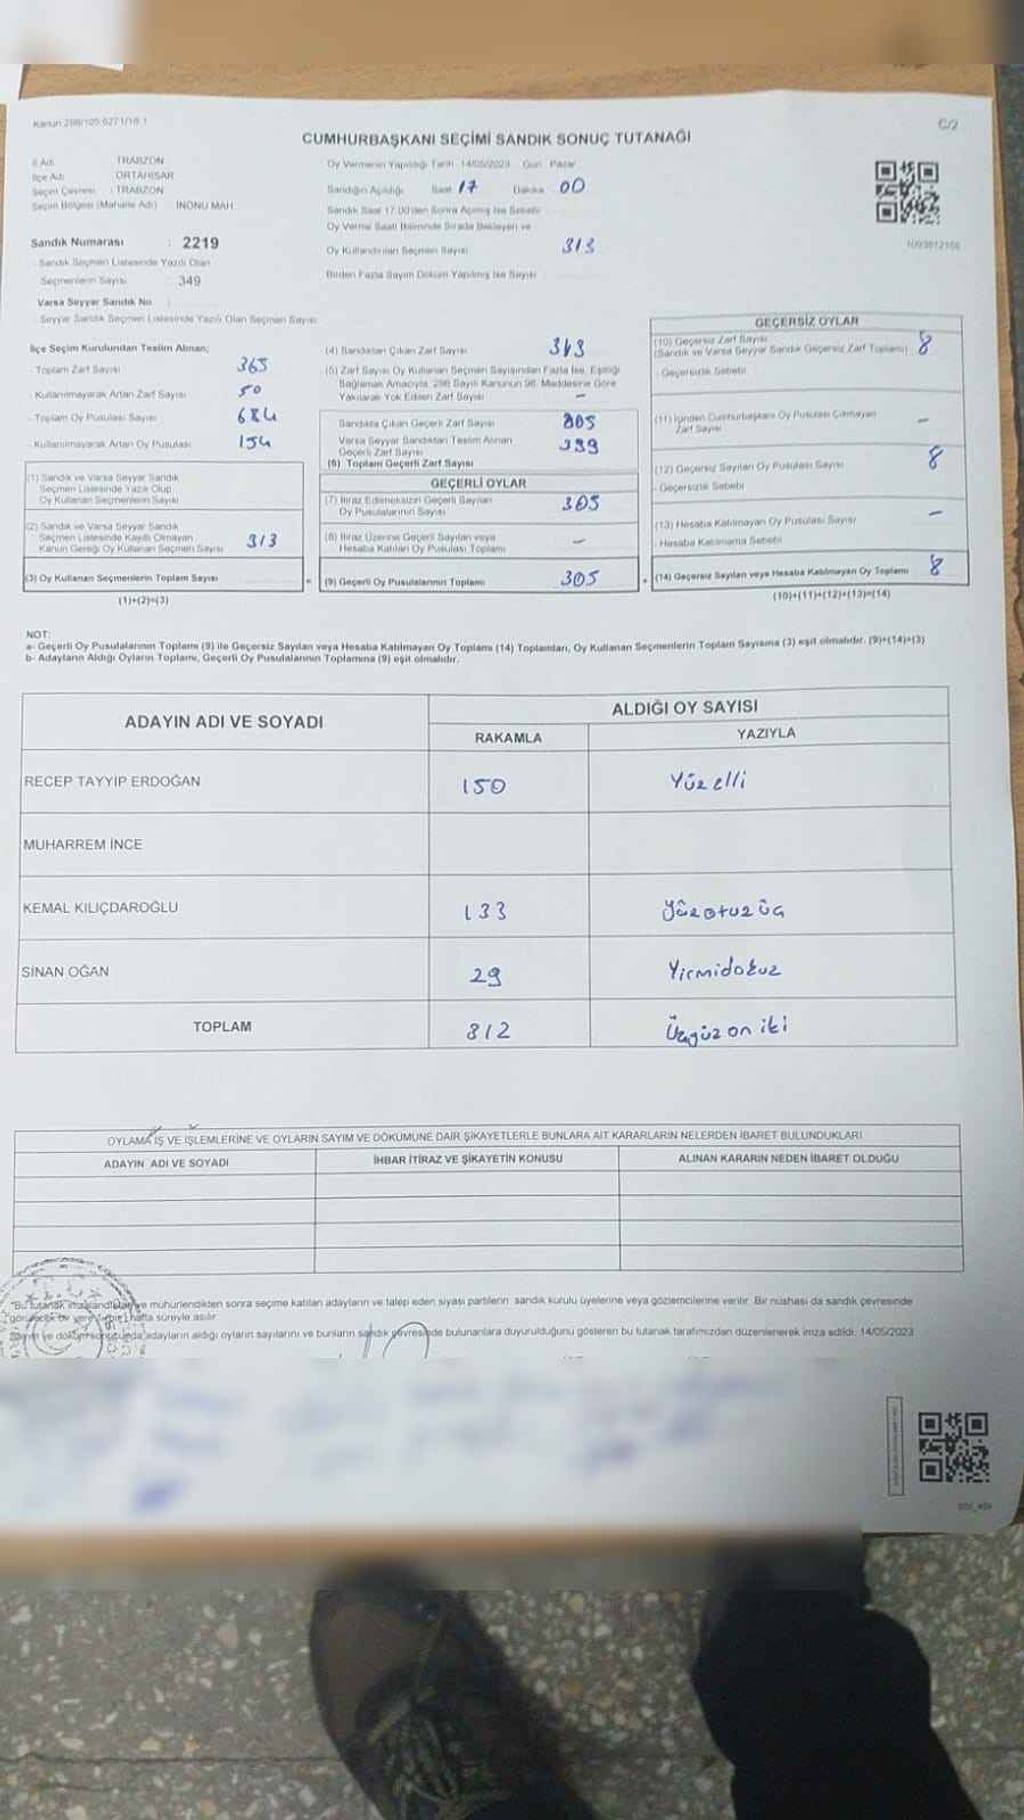 Kanun 298/105 6271/18.1
C/2
CUMHURBAŞKANI SEÇİMİ SANDIK SONUÇ TUTANAĞI
İl Adı : TRABZON
İlçe Adı : ORTAHİSAR
Seçim Çevresi : TRABZON
Seçim Bölgesi (Mahalle Adı) : İNÖNÜ MAH.
Oy Vermenin Yapıldığı Tarih 14/05/2023 Gün Pazar
Sandığın Açıldığı Saat 17 Dakika 00
Sandık Saat 17.00'den Sonra Açılmış İse Sebebi
Oy Verme Saati Bitiminde Sırada Bekleyen ve
Oy Kullandırılan Seçmen Sayısı 313
Birden Fazla Sayım Döküm Yapılmış İse Sayısı
Sandık Numarası : 2219
Sandık Seçmen Listesinde Yazılı Olan
Seçmenlerin Sayısı 349
Varsa Seyyar Sandık No
Seyyar Sandık Seçmen Listesinde Yazılı Olan Seçmen Sayısı
İlçe Seçim Kurulundan Teslim Alınan;
- Toplam Zarf Sayısı 365
- Kullanılmayarak Artan Zarf Sayısı 50
- Toplam Oy Pusulası Sayısı
- Kullanılmayarak Artan Oy Pusulası 154
(1) Sandık ve Varsa Seyyar Sandık
Seçmen Listesinde Yazılı Olup
Oy Kullanan Seçmenlerin Sayısı
(2) Sandık ve Varsa Seyyar Sandık
Seçmen Listesinde Kayıtlı Olmayan
Kanun Gereği Oy Kullanan Seçmen Sayısı 313
(3) Oy Kullanan Seçmenlerin Toplam Sayısı
(1)+(2)=(3)
(4) Sandıktan Çıkan Zarf Sayısı 313
(5) Zarf Sayısı Oy Kullanan Seçmen Sayısından Fazla İse, Eşitliği
Sağlamak Amacıyla, 298 Sayılı Kanunun 98. Maddesine Göre
Yakılarak Yok Edilen Zarf Sayısı -
Sandıkta Çıkan Geçerli Zarf Sayısı 305
Varsa Seyyar Sandıktan Teslim Alınan
Geçerli Zarf Sayısı
(6) Toplam Geçerli Zarf Sayısı
GEÇERLİ OYLAR
(7) İtiraz Edilmeksizin Geçerli Sayılan
Oy Pusulalarının Sayısı 305
(8) İtiraz Üzerine Geçerli Sayılan veya
Hesaba Katılan Oy Pusulası Toplamı -
= (9) Geçerli Oy Pusulalarının Toplamı 305
GEÇERSİZ OYLAR
(10) Geçersiz Zarf Sayısı
(Sandık ve Varsa Seyyar Sandık Geçersiz Zarf Toplamı) 8
- Geçersizlik Sebebi
(11) İçinden Cumhurbaşkanı Oy Pusulası Çıkmayan
Zarf Sayısı -
(12) Geçersiz Sayılan Oy Pusulası Sayısı 8
- Geçersizlik Sebebi
(13) Hesaba Katılmayan Oy Pusulası Sayısı -
- Hesaba Katılmama Sebebi
+ (14) Geçersiz Sayılan veya Hesaba Katılmayan Oy Toplamı 8
(10)+(11)+(12)+(13)=(14)
NOT:
a- Geçerli Oy Pusulalarının Toplamı (9) ile Geçersiz Sayılan veya Hesaba Katılmayan Oy Toplamı (14) Toplamları, Oy Kullanan Seçmenlerin Toplam Sayısına (3) eşit olmalıdır. (9)+(14)=(3)
b- Adayların Aldığı Oyların Toplamı, Geçerli Oy Pusulalarının Toplamına (9) eşit olmalıdır.
ADAYIN ADI VE SOYADI
ALDIĞI OY SAYISI
RAKAMLA YAZIYLA
RECEP TAYYİP ERDOĞAN 150 Yüzelli
MUHARREM İNCE
KEMAL KILIÇDAROĞLU 133 Yüzotuzüç
SİNAN OĞAN 29 Yirmidokuz
TOPLAM 312 Üçyüz on iki
OYLAMA İŞ VE İŞLEMLERİNE VE OYLARIN SAYIM VE DÖKÜMÜNE DAİR ŞİKAYETLERLE BUNLARA AİT KARARLARIN NELERDEN İBARET BULUNDUKLARI
ADAYIN ADI VE SOYADI İHBAR İTİRAZ VE ŞİKAYETİN KONUSU ALINAN KARARIN NEDEN İBARET OLDUĞU
"Bu tutanak imzalandıktan ve mühürlendikten sonra seçime katılan adayların ve talep eden siyasi partilerin sandık kurulu üyelerine veya gözlemcilerine verilir. Bir nüshası da sandık çevresinde
görülecek bir yere 1 hafta süreyle asılır.
Sayım ve döküm sonucunda adayların aldığı oyların sayılarını ve bunların sandık çevresinde bulunanlara duyurulduğunu gösteren bu tutanak tarafımızdan düzenlenerek imza edildi. 14/05/2023